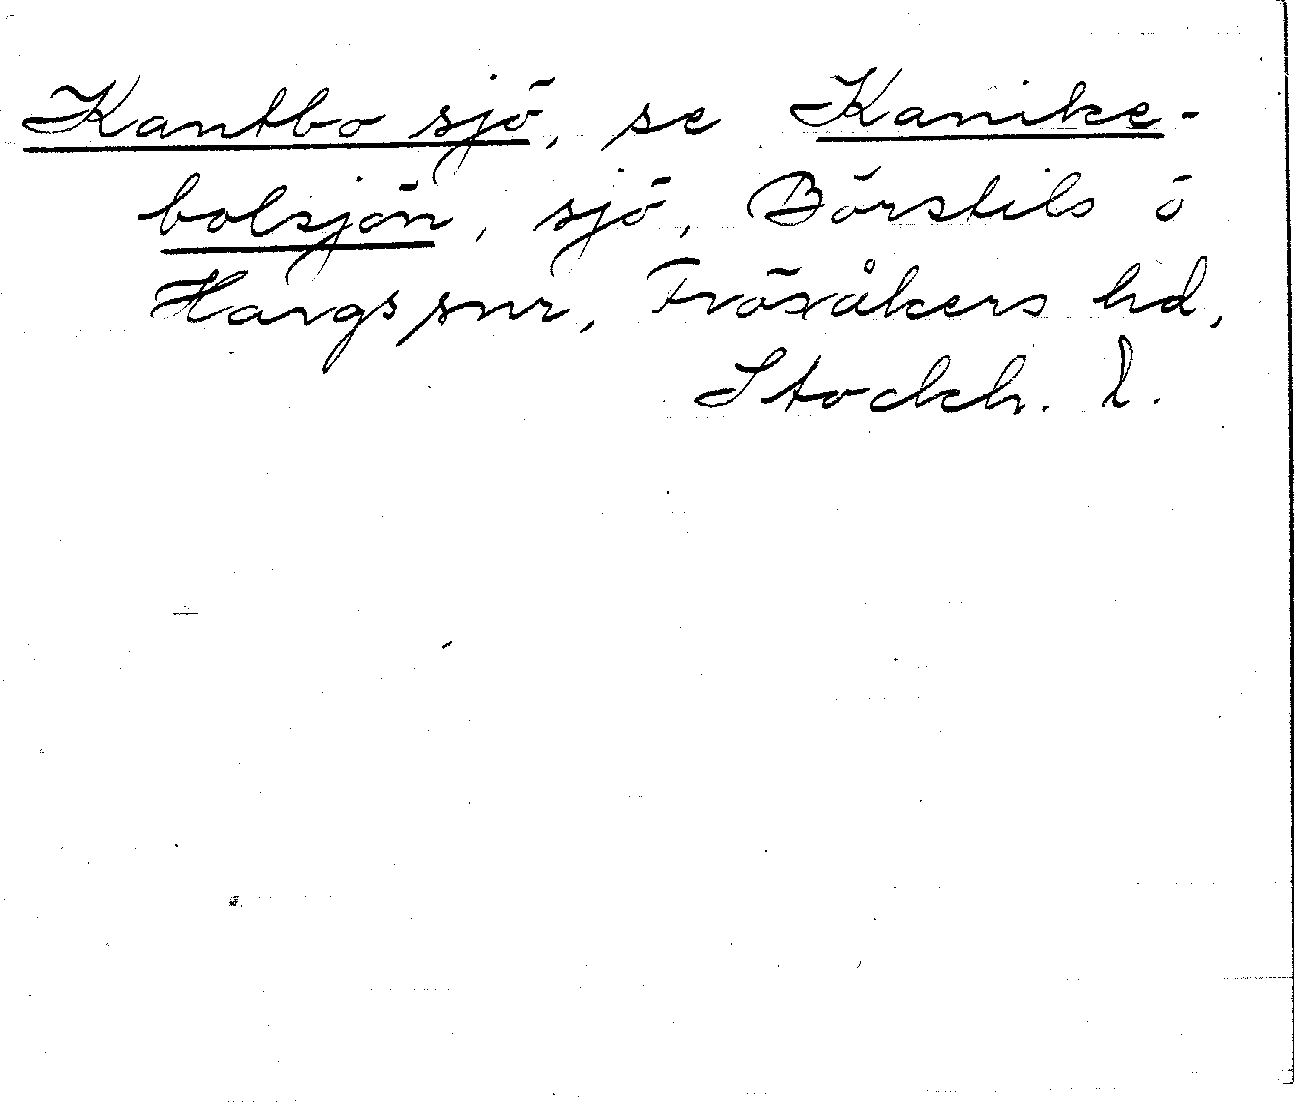 Kantbo sjö, se Kanike-
bolsjön, sjö, Börstils o
Hargs snr, Frösåkers hd,
Stockh. l.